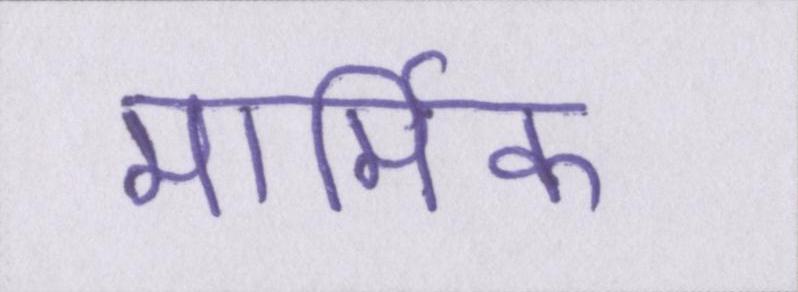 मार्मिक